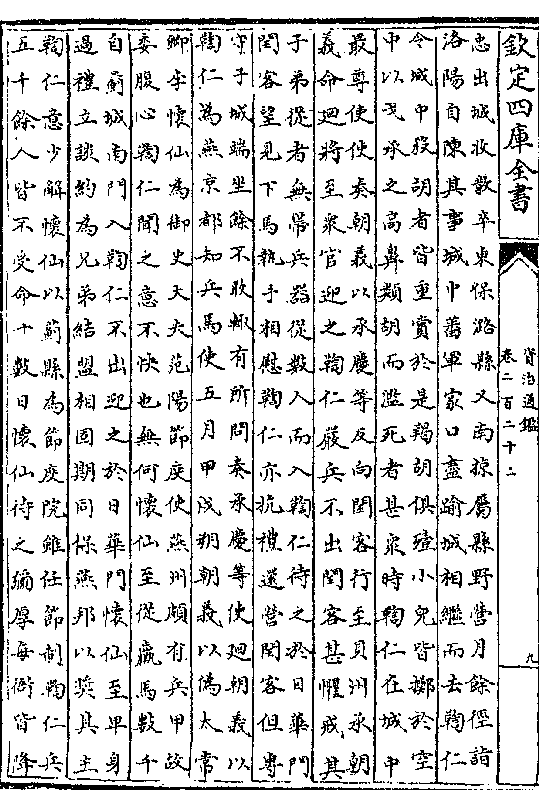 欽定四庫全書
資治通鑑
卷二百二十二
九
忠出城收散卒東保潞縣又南掠屬縣野營月餘徑詣
洛陽自陳其事城中蕃軍家口盡踰城相繼而去鞠仁
令城中殺胡者皆重賞於是羯胡俱殪小兒皆擲於空
中以戈承之高鼻類胡而濫死者甚衆時鞠仁在城中
最尊使使奏朝義以承慶等反向閏客行至貝州承朝
義命迴將至衆官迎之鞠仁嚴兵不出閏客甚懼戒其
子弟從者無帶兵器從數人而入鞠仁待之於日華門
閏客望見下馬執手相慰鞠仁亦抗禮還營閏客但專
守子城端坐餘不敢輒有所問奏承慶等使迴朝義以
鞠仁為燕京都知兵馬使五月甲戌朔朝義以偽太常
卿李懷仙為御史大夫范陽節度使燕州頗有兵甲故
委腹心鞠仁聞之意不快也無何懷仙至從羸馬數千
自薊城南門入鞠仁不出迎之於日華門懷仙至卑身
過禮立談約為兄弟結盟相固期同保燕邦以奬其主
鞠仁意少解懷仙以薊縣為節度院雖任節制鞠仁兵
五千餘人皆不受命十數日懷仙待之彌厚每衙皆降